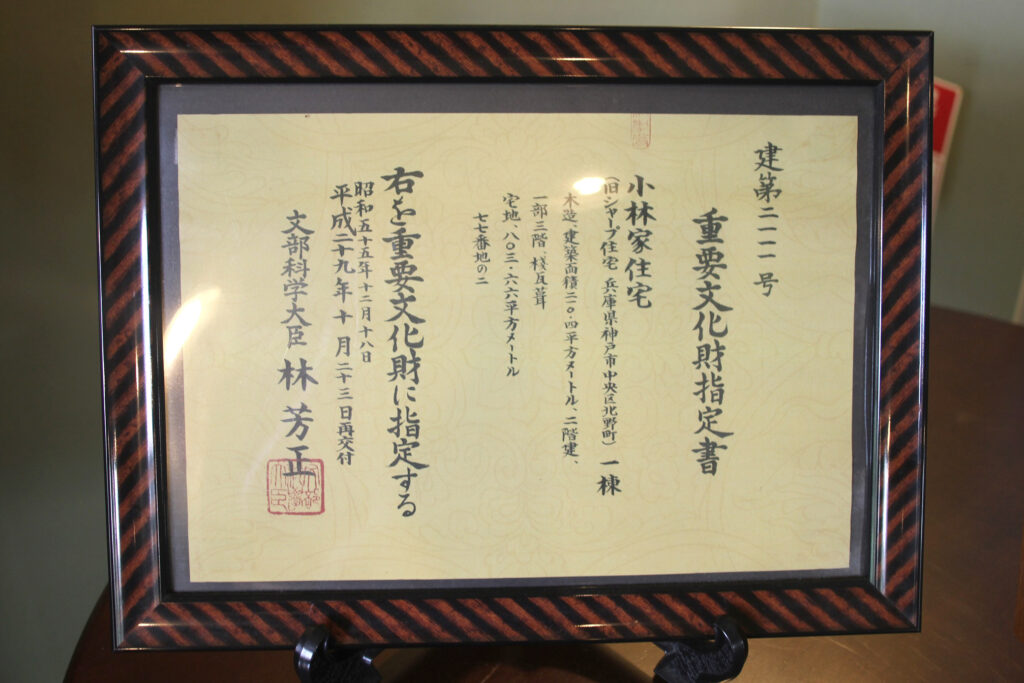 建第二一一一号
重要文化財指定書
小林家住宅
(旧シャープ住宅 兵庫県神戸市中央区北野町) 一棟
木造、建築面積二一〇・四平方メートル、二階建、
一部三階 棧瓦葺
宅地、八〇三・六六平方メートル
七七番地の二
右を重要文化財に指定する
昭和五十五年十二月十八日
平成二十九年十月二十三日再交付
文部科学大臣 林芳正